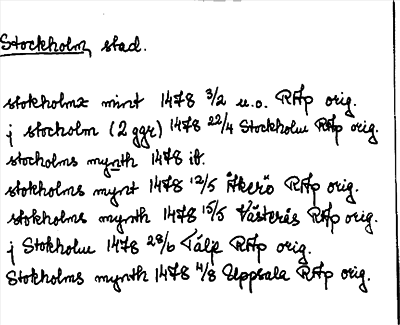 Stockholm, stad.
stokholmx mint 1478 3/2 u.o. RAp orig.
j stocholm (2 ggr) 1478 22/4 Stockholm RAp orig.
stocholms mynth 1478 ib.
stokholms mynt 1478 12/5 Åkerö RAp orig.
stokholms mynth 1478 15/5 Västerås RAp orig.
j Stokholm 1478 28/6 Tälje RAp orig.
Stokholms mynth 1478 4/8 Uppsala RAp orig.